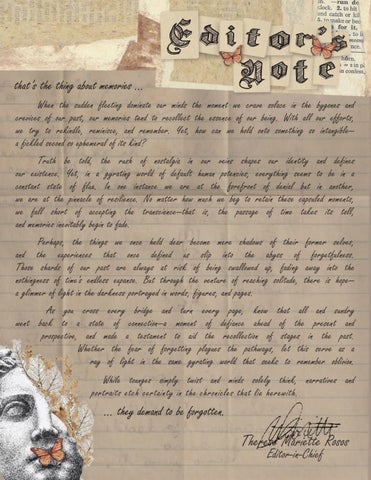 Editor's
Note
that's the thing about memories ...
When the sudden fleeting dominate our minds the moment we crave solace in the bygones and
crevices of our past, our memories tend to recollect the essence of our being. With all our efforts,
we try to rekindle, reminisce, and remember. Yet, how can we hold onto something so intangible—
a fickled second so ephemeral of its kind?
Truth be told, the rush of nostalgia in our veins shapes our identity and defines
our existence. Yet, in a gyrating world of default human potencies, everything seems to be in a
constant state of flux. In one instance we are at the forefront of denial but in another,
we are at the pinnacle of resilience. No matter how much we beg to retain those capsuled moments,
we fall short of accepting the transience—that is, the passage of time takes its toll,
and memories inevitably begin to fade.
Perhaps, the things we once held dear become mere shadows of their former selves,
and the experiences that once defined us slip into the abyss of forgetfulness.
Those shards of our past are always at risk of being swallowed up, fading away into the
nothingness of time's endless expanse. But through the venture of reaching solitude, there is hope—
a glimmer of light in the darkness portrayed in words, figures, and pages.
As you cross every bridge and turn every page, know that all and sundry
went back to a state of connection—a moment of defiance ahead of the present and
prospective, and made a testament to aid the recollection of stages in the past.
Whether the fear of forgetting plagues the pathways, let this serve as a
ray of light in the same gyrating world that seeks to remember oblivion.
While tounges simply twist and minds solely think, narratives and
portraits etch certainty in the chronicles that lie herewith.
... they demand to be forgotten.
Theresa Mariette Rosos
Editor-in-Chief